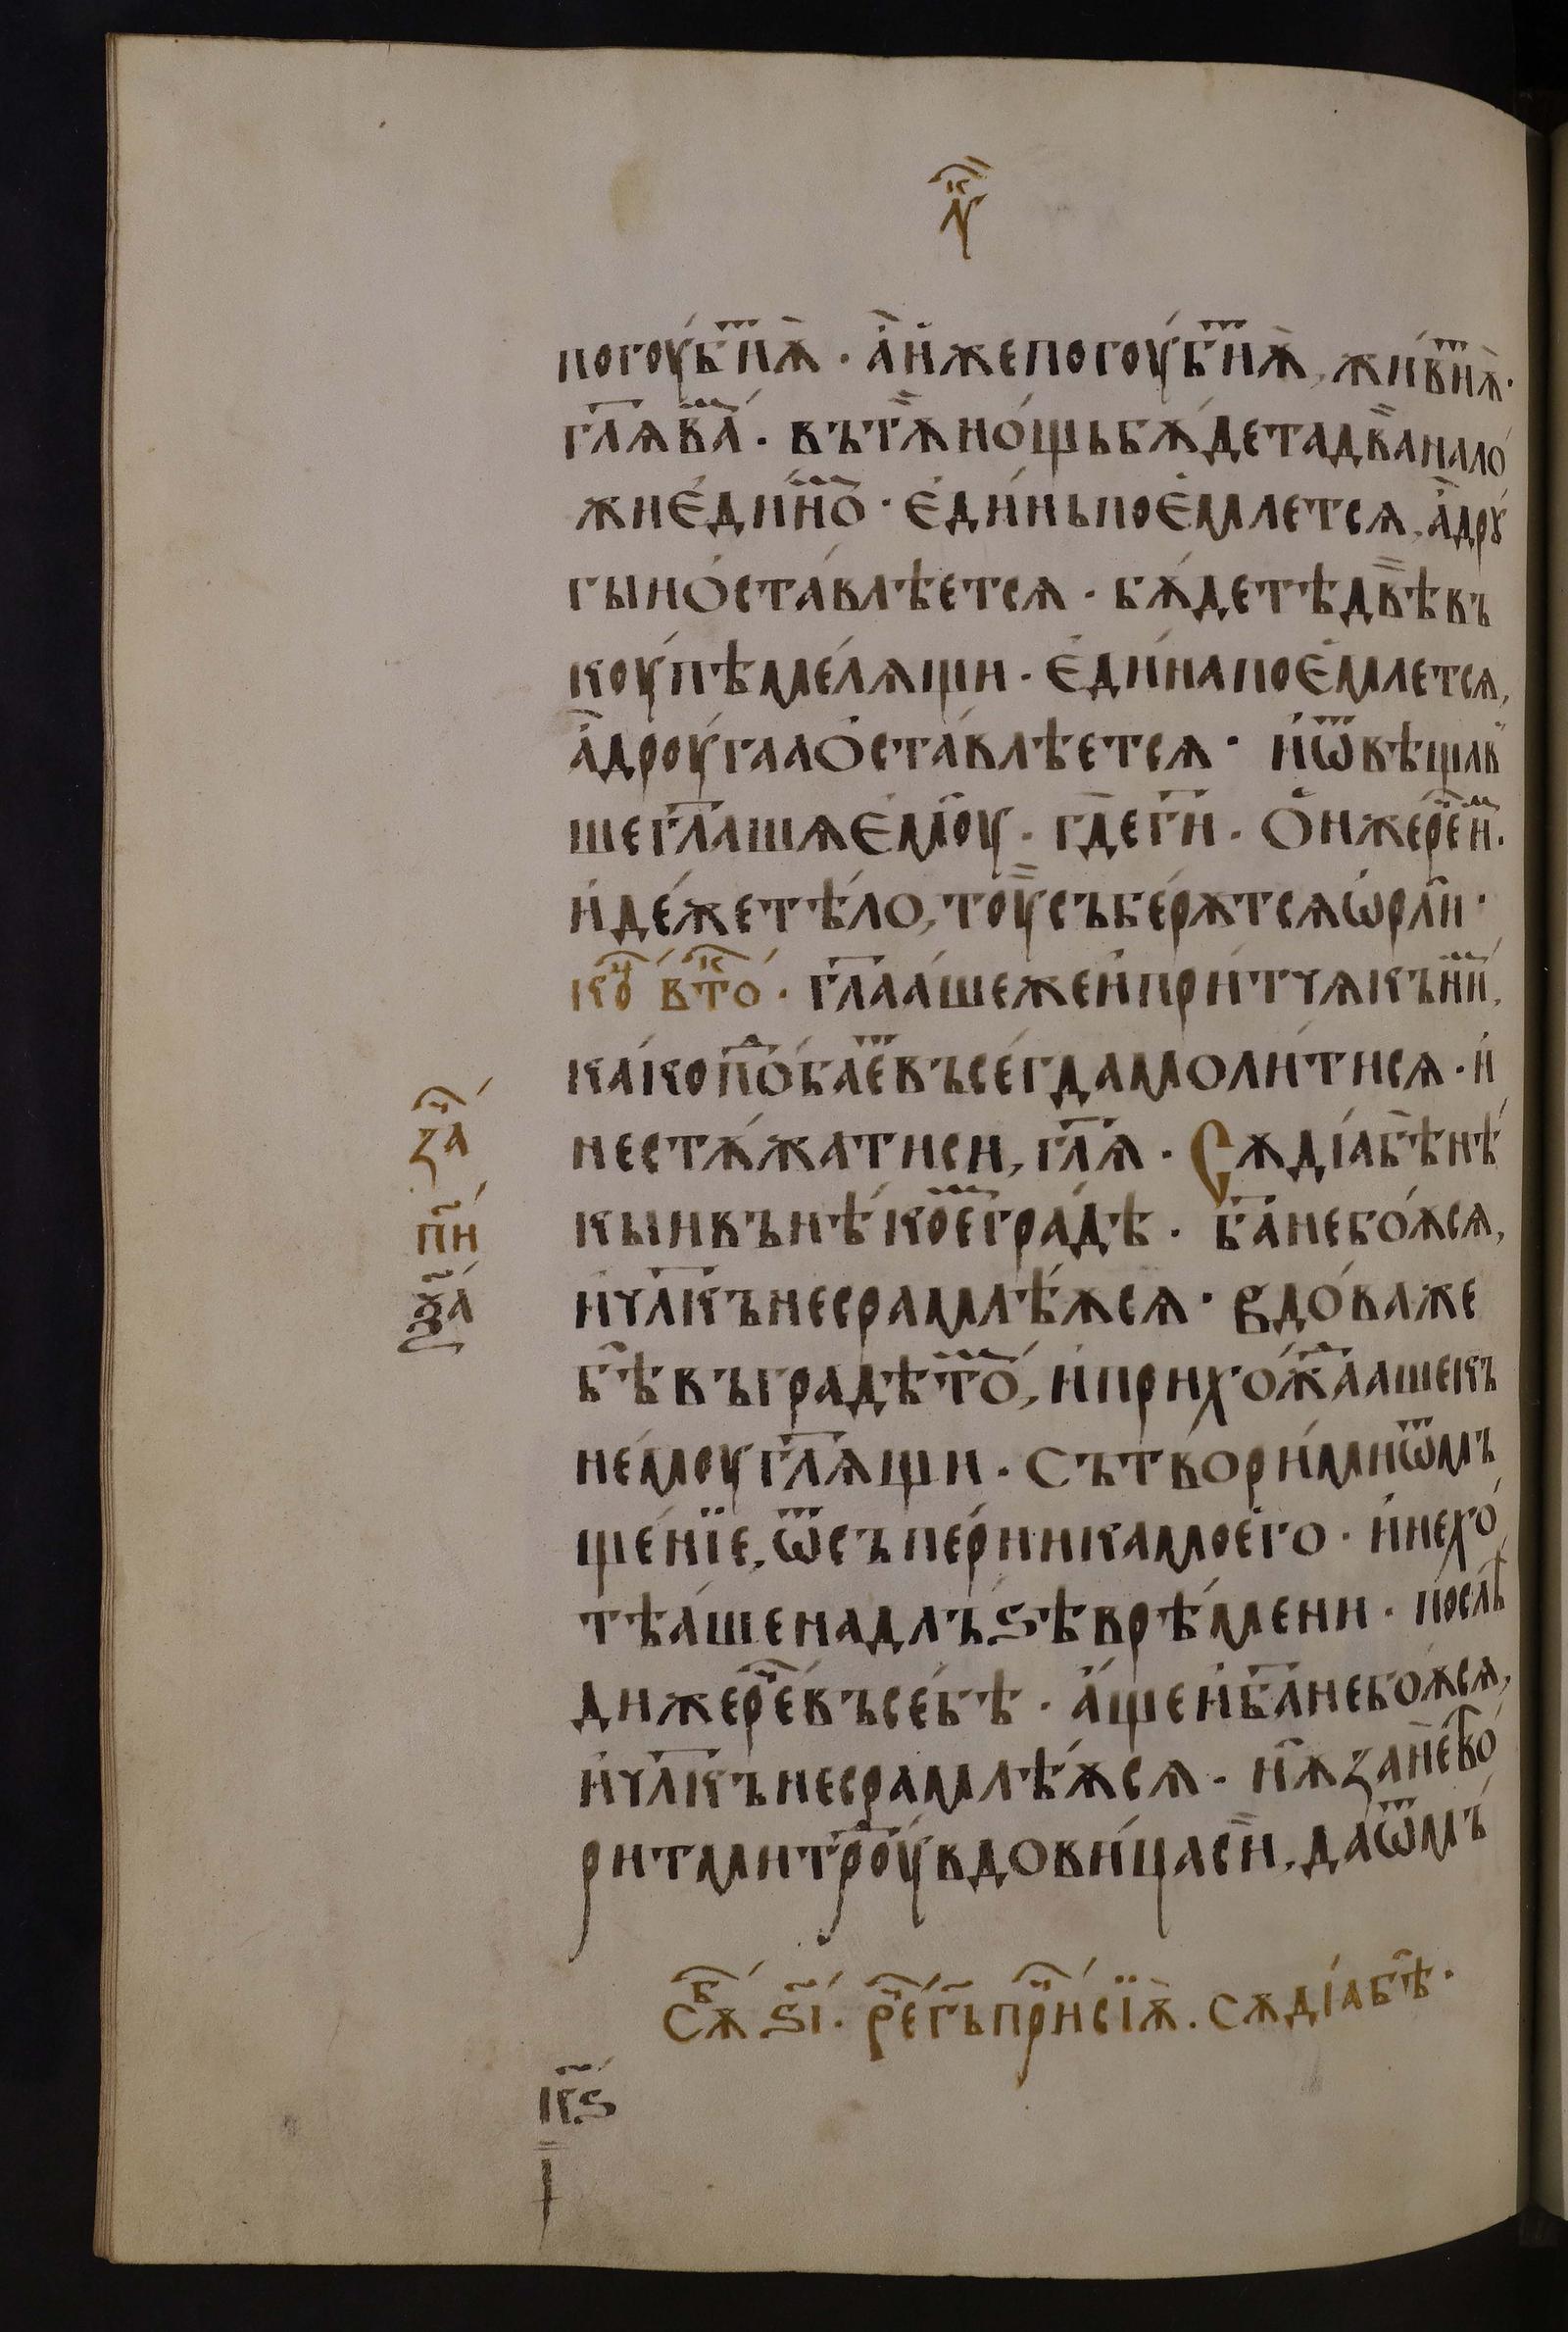 л҇к
погоуби́тъ ѫ̀ · а҆ и҆же погоуби́т ѫ̀, живи́т ѫ̀ ·
гл҃ѧ ва́мъ · въ тѫ̏ но́щь бѫ́дета два̏ на ло́
жи є҆ди́но · є҆ди́нь поє́млетсѧ, а҆ дрꙋ
гыи ѻ҆ста́влѣетсѧ · бѫ́детѣ двѣ̏ въ
коу́пѣ ме́лѧщи · є҆ди́на поє́млетсѧ,
а҆ дроу́гаа ѻ҆ста́влѣетсѧ · и҆ ѿвѣщав
ше гл҃ашѧ є҆моу · гдѐ ги҃ · ѻ҆нже рече и҆м ·
и҆де́же тѣ́ло, тоу̏ съберѫ́тсѧ ѡ҆рли ·
ко҇ц в̾то҇к · гл҃аа́ше же и҆ при́тчѧ къ ни́м,
ка́ко подо́баетъ въсегда̀ моли́тисѧ · и҆
не стѫ́жати си, гл҃ѧ · Сѫдіа́ бѣ нѣ́
кыи въ нѣ́коемъ гра́дѣ · б҃а не боѫ́сѧ,
и҆ чл҃къ не срамлѣ́ѫсѧ · Вдова́ же
бѣ въ градѣ то́мъ, и҆ прихожда́аше къ
не́моу гл҃ѧщи · сътвори́ ми ѿмъ
ще́нїе, ѿ съпе́рника моего̀ · и҆ не хо
тѣа́ше на длъѕѣ врѣ́мени · послѣ
ди же речѐ въ се́бѣ · а҆́ще и҆ б҃а не боѫ́сѧ,
и҆ чл҃къ не срамлѣ́ѫсѧ · нѫ̀ занѐ тво
рит ми троу́дъ вдови́ца си̏, да ѿмъ
за҇ч
п҃и
ѕ҃а
сѫ҇б ѕ҃і · рече г҃ь при́тчѫ сїѫ̀ · сѫдіа́ бѣ ·
к҃ѕ